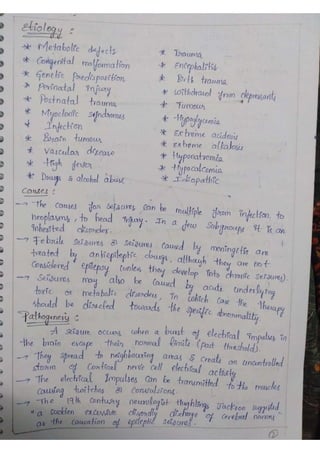 Etiology :
* Metabolic defects
* Congenital malformation
* Genetic predisposition
* Perinatal injury
* Postnatal trauma
* Myoclonic syndromes
* Infection
* Brain tumour
* Vascular disease
* High fever
* Drugs & alcohol abuse
* Trauma
* Encephalitis
* Birth trauma
* withdrawl from depressants
* Tumour
* Hypoglycemia
* Extreme acidosis
* extreme alkalosis
* Hyponatremia
* Hypocalcemia
* Idiopathic
Causes :
→ The causes for seizures can be multiple from infection, to
neoplasms, to head injury. In a few subgroups it is an
inherited disorder.
→ Febrile seizures & seizures caused by meningitis are
treated by antiepileptic drugs, although they are not
considered epilepsy (unless they develop into chronic seizures).
→ Seizures may also be caused by acute underlying
toxic or metabolic disorders, in which case the therapy
should be directed towards the specific abnormality.
Pathogenesis :
A seizure occurs when a burst of electrical impulses in
the brain escape their normal limits (past threshold).
→ They spread to neighbouring areas & create an uncontrolled
storm of cortical nerve cell electrical activity
→ The electrical impulses can be transmitted to the muscles
causing twitches & convulsions.
→ The 19th century neurologist Hughlings Jackson suggested
"a sudden excessive disorderly discharge of cerebral neurons
as the causation of epileptic seizures.